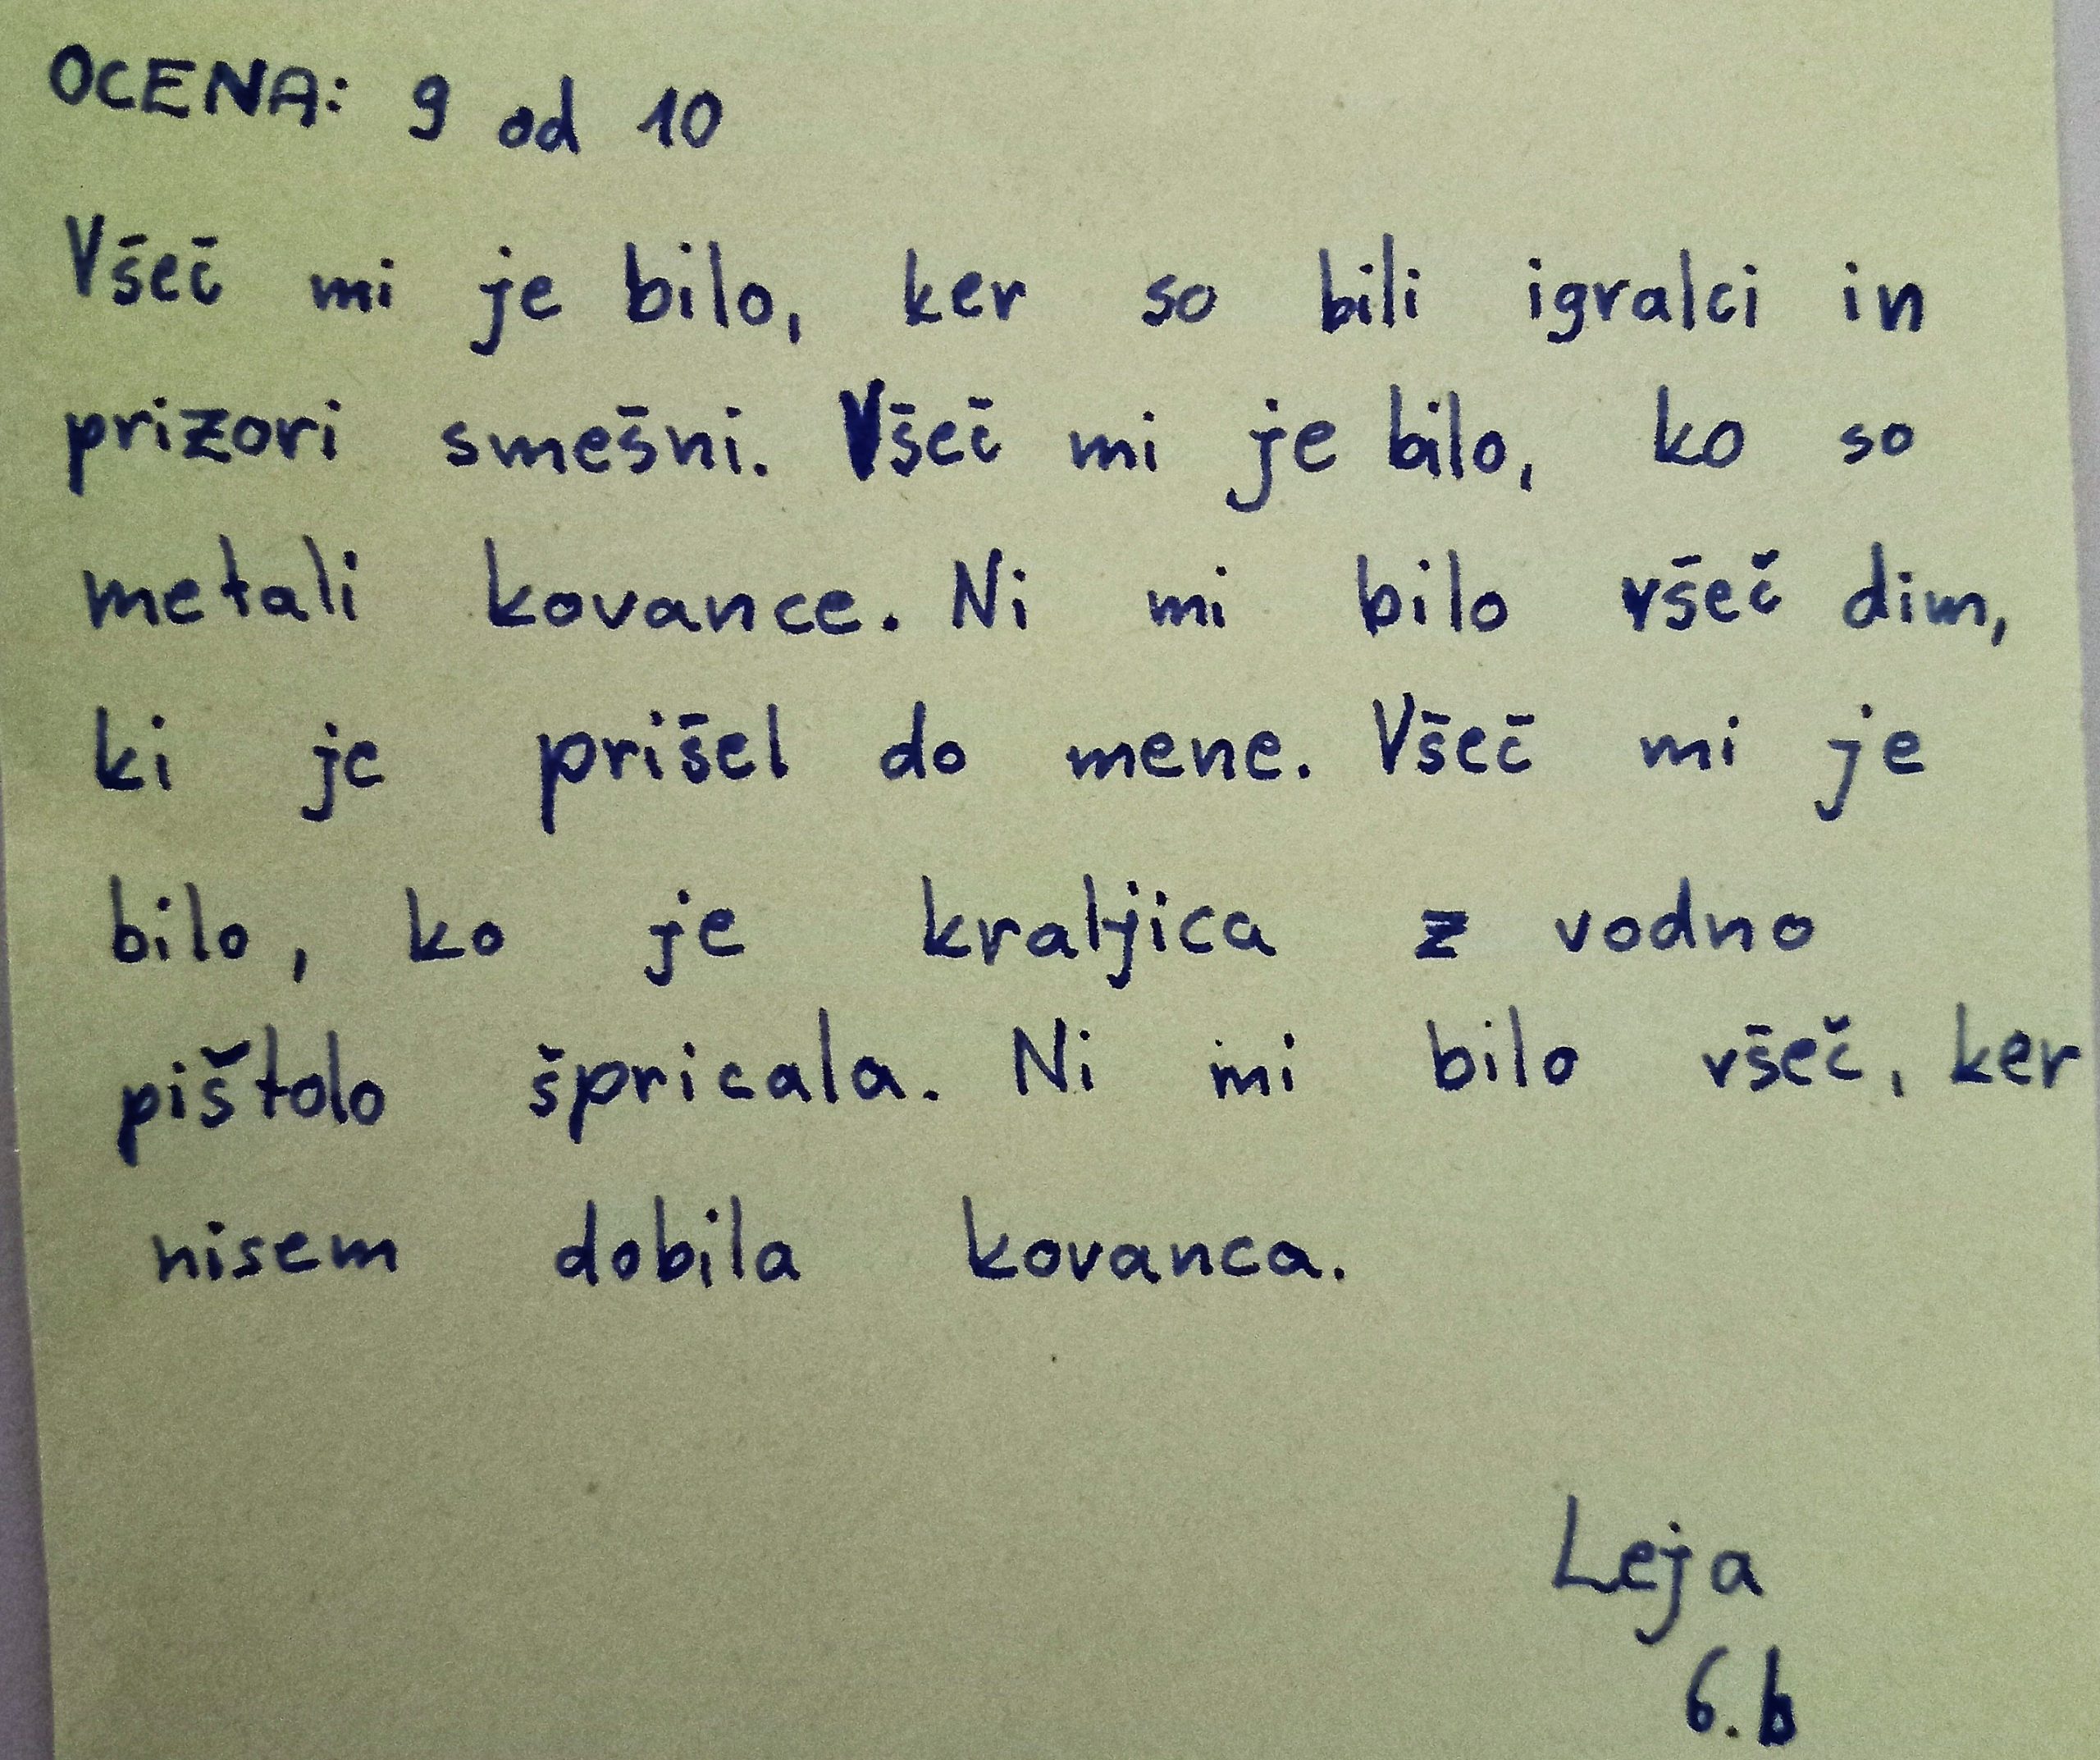 OCENA: 9 od 10
Všeč mi je bilo, ker so bili igralci in
prizori smešni. Všeč mi je bilo, ko so
metali kovance. Ni mi bilo všeč dim,
ki je prišel do mene. Všeč mi je
bilo, ko je kraljica z vodno
pištolo špricala. Ni mi bilo všeč, ker
nisem dobila kovanca.
Leja
6.b